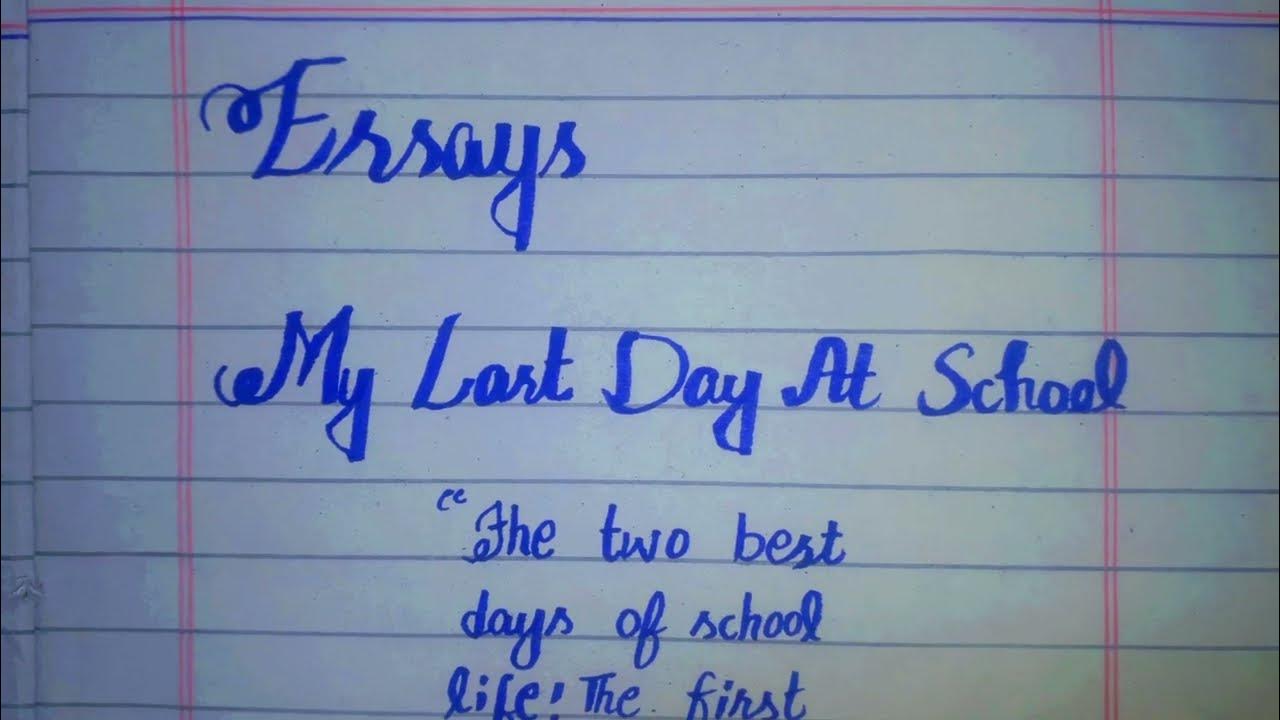 Essays
My Last Day At School
“The two best
days of school
life: The first